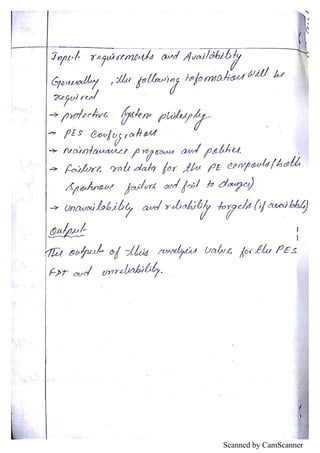 Input requirements and Availability
Generally , the following information will be
required
→ protective System philosphy
→ PES Confugration
→ maintanance programs and polities.
→ Failure rate data for the PE compouls (both
Spotnous failure and fail to danger)
→ Unavailability and reliability targets (if available)
Output
The output of this analysis value for the PES
FDT and unreliability.
Scanned by CamScanner